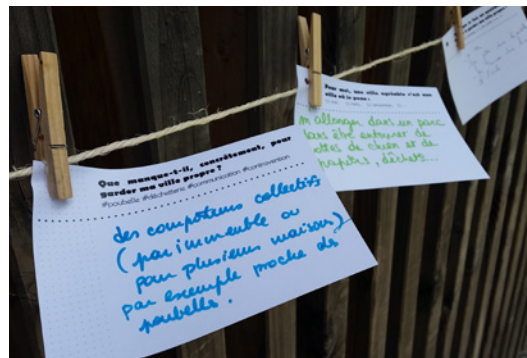 Que manque-t-il, concrètement, pour
garder ma ville propre ?
#poubelle #déchetterie #communication #contravention
des composteurs collectifs
(par immeuble ou
pour plusieurs maisons)
par exemple proche des
poubelles.
Pour moi, une ville agréable c'est une
ville où je peux :
m'allonger dans un parc
sans être entourée de
crottes de chien et de
papiers, déchets...